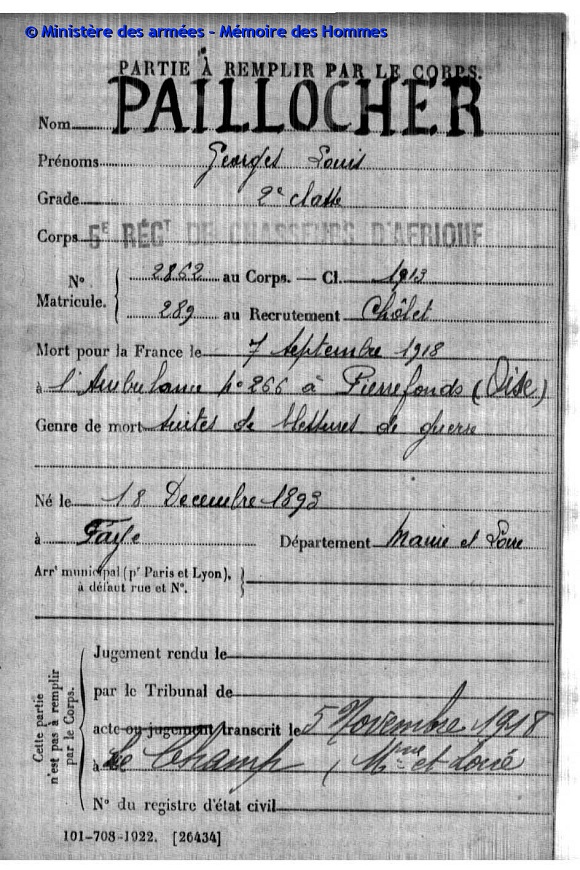 © Ministère des armées - Mémoire des Hommes
PARTIE À REMPLIR PAR LE CORPS.
Nom PAILLOCHER
Prénoms Georges Louis
Grade 2e classe
Corps 5E RÉGT DE CHASSEURS D'AFRIQUE
N° Matricule. { 2862 au Corps. — Cl. 1913
289 au Recrutement Chôlet
Mort pour la France le 7 Septembre 1918
à l'Ambulance n° 266 à Pierrefonds (Oise)
Genre de mort suites de blessures de guerre
Né le 18 Decembre 1893
à Faye Département Maine et Loire
Arrt municipal (pr Paris et Lyon), à défaut rue et N°. }
Cette partie n'est pas à remplir par le Corps.
Jugement rendu le
par le Tribunal de
acte ou jugement transcrit le 5 Novembre 1918
à Le Champ (Mne et Loire
N° du registre d'état civil
101-708-1922. [26434]